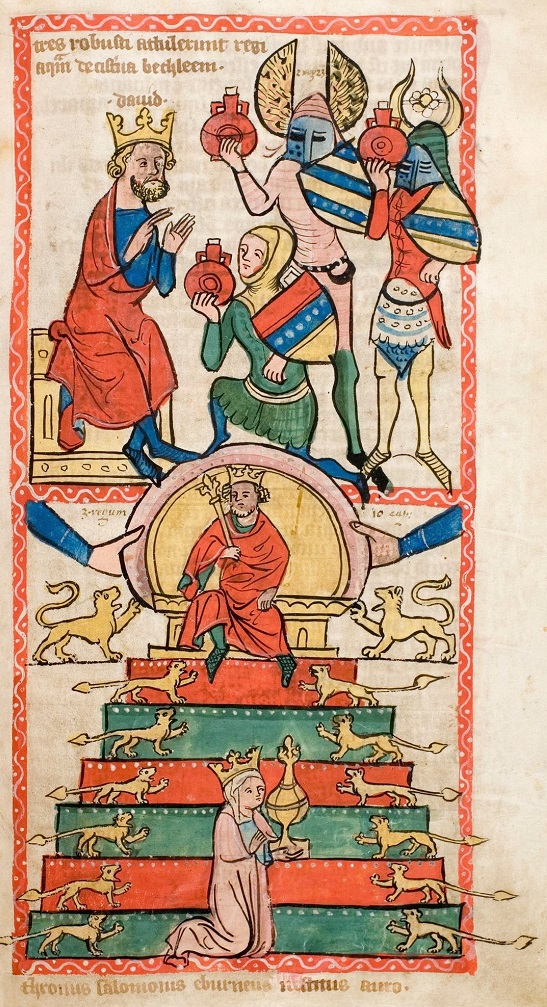 tres robusti attulerunt regi
aqm̄ de cistīa bechleem.
·dauid·
2 reg 23
3. regum
10 cap
thronus salomonis eburneus uestitus auro.